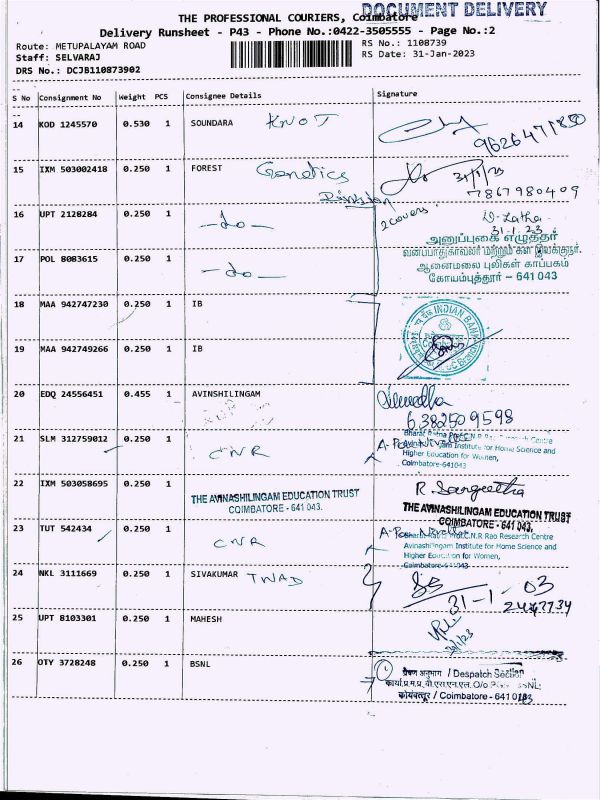 THE PROFESSIONAL COURIERS, Coimbatore
DOCUMENT DELIVERY
Delivery Runsheet - P43 - Phone No.:0422-3505555 - Page No.:2
Route: METUPALAYAM ROAD
RS No.: 1108739
Staff: SELVARAJ
RS Date: 31-Jan-2023
DRS No.: DCJB110873902
S No Consignment No Weight PCS Consignee Details Signature
14 KOD 1245570 0.530 1 SOUNDARA KNOT
9626471850
15 IXM 503002418 0.250 1 FOREST Genetics
Division
31/1/23
7867980409
16 UPT 2128284 0.250 1 -do-
2 covers
31-1-23
அனுப்புகை எழுத்தர்
வனப்பாதுகாவலர் மற்றும் கள இயக்குநர்
ஆனைமலை புலிகள் காப்பகம்
கோயம்புத்தூர் - 641 043
17 POL 8083615 0.250 1 -do-
18 MAA 942747230 0.250 1 IB
INDIAN BANK
19 MAA 942749266 0.250 1 IB
20 EDQ 24556451 0.455 1 AVINSHILINGAM
6382509598
21 SLM 312759012 0.250 1 CNR
Bharat Ratna Prof.C.N.R Rao Research Centre
Avinashilingam Institute for Home Science and
Higher Education for Women,
Coimbatore-641043
22 IXM 503058695 0.250 1
THE AVINASHILINGAM EDUCATION TRUST
COIMBATORE - 641 043.
R. Sangeetha
THE AVINASHILINGAM EDUCATION TRUST
COIMBATORE - 641 043.
23 TUT 542434 0.250 1 CNR
Bharat Ratna Prof.C.N.R Rao Research Centre
Avinashilingam Institute for Home Science and
Higher Education for Women,
Coimbatore-641043
24 NKL 3111669 0.250 1 SIVAKUMAR TWAD
31-1-03
25 UPT 8103301 0.250 1 MAHESH
26 OTY 3728248 0.250 1 BSNL
प्रेषण अनुभाग / Despatch Section
कोयंबत्तूर / Coimbatore - 641 043